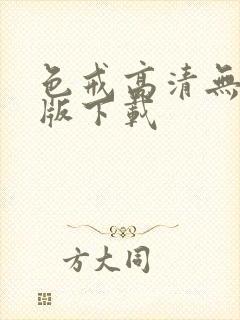 色戒高清無
版下載
方大同